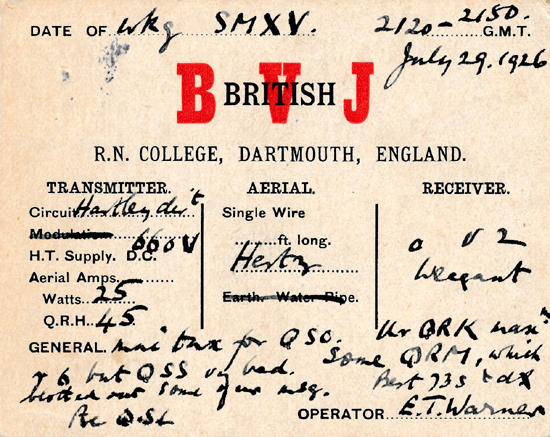 DATE OF wkg SMXV. 2120 - 2150. G.M.T.
July 29. 1926
B V J
BRITISH
R.N. COLLEGE, DARTMOUTH, ENGLAND.
TRANSMITTER.
Circuit Hartley di't
Modulation
H.T. Supply. D.C. 660 V
Aerial Amps.
Watts 25
Q.R.H. 45
AERIAL.
Single Wire
ft. long.
Hertz
Earth. Water Pipe.
RECEIVER.
o v 2
Weagant
GENERAL. mni tnx for QSO. Ur QRK max
r 6 but QSS vy bad. Some QRM, which
blotted out some of ur msg. Best 73s & dx
Pse QSL
OPERATOR E.T. Warner